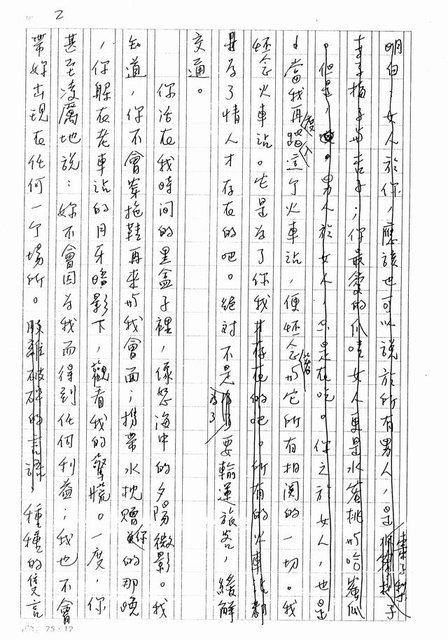 2
明白，女人於你，應該也可以說於所有男人，是
李子梅子與杏子；你最愛的瓜哇女人更是水蜜桃哈蜜瓜
。但是，男人於女人，不是在吃。你之於女人，也是
。當我再度踏這個火車站，便怒念著它所有相關的一切。我
怒念火車站。它是為了你我才存在的吧。所有的火車站都
是為了情人才存在的吧。絕對不是為了要輸運旅客，緩解
交通。
你活在我時間的黑盒子裡，像怒海中的夕陽微影。我
知道，你不會穿拖鞋再來與我會面；攜帶水枕贈你的那晚
，你躲在老車站的月牙暗影下，觀看我的驚慌。一度，你
甚至凌厲地說：妳不會因為我而得到任何利益；我也不會
帶妳出現在任何一個場所。脫離破碎的言語，種種的隻言